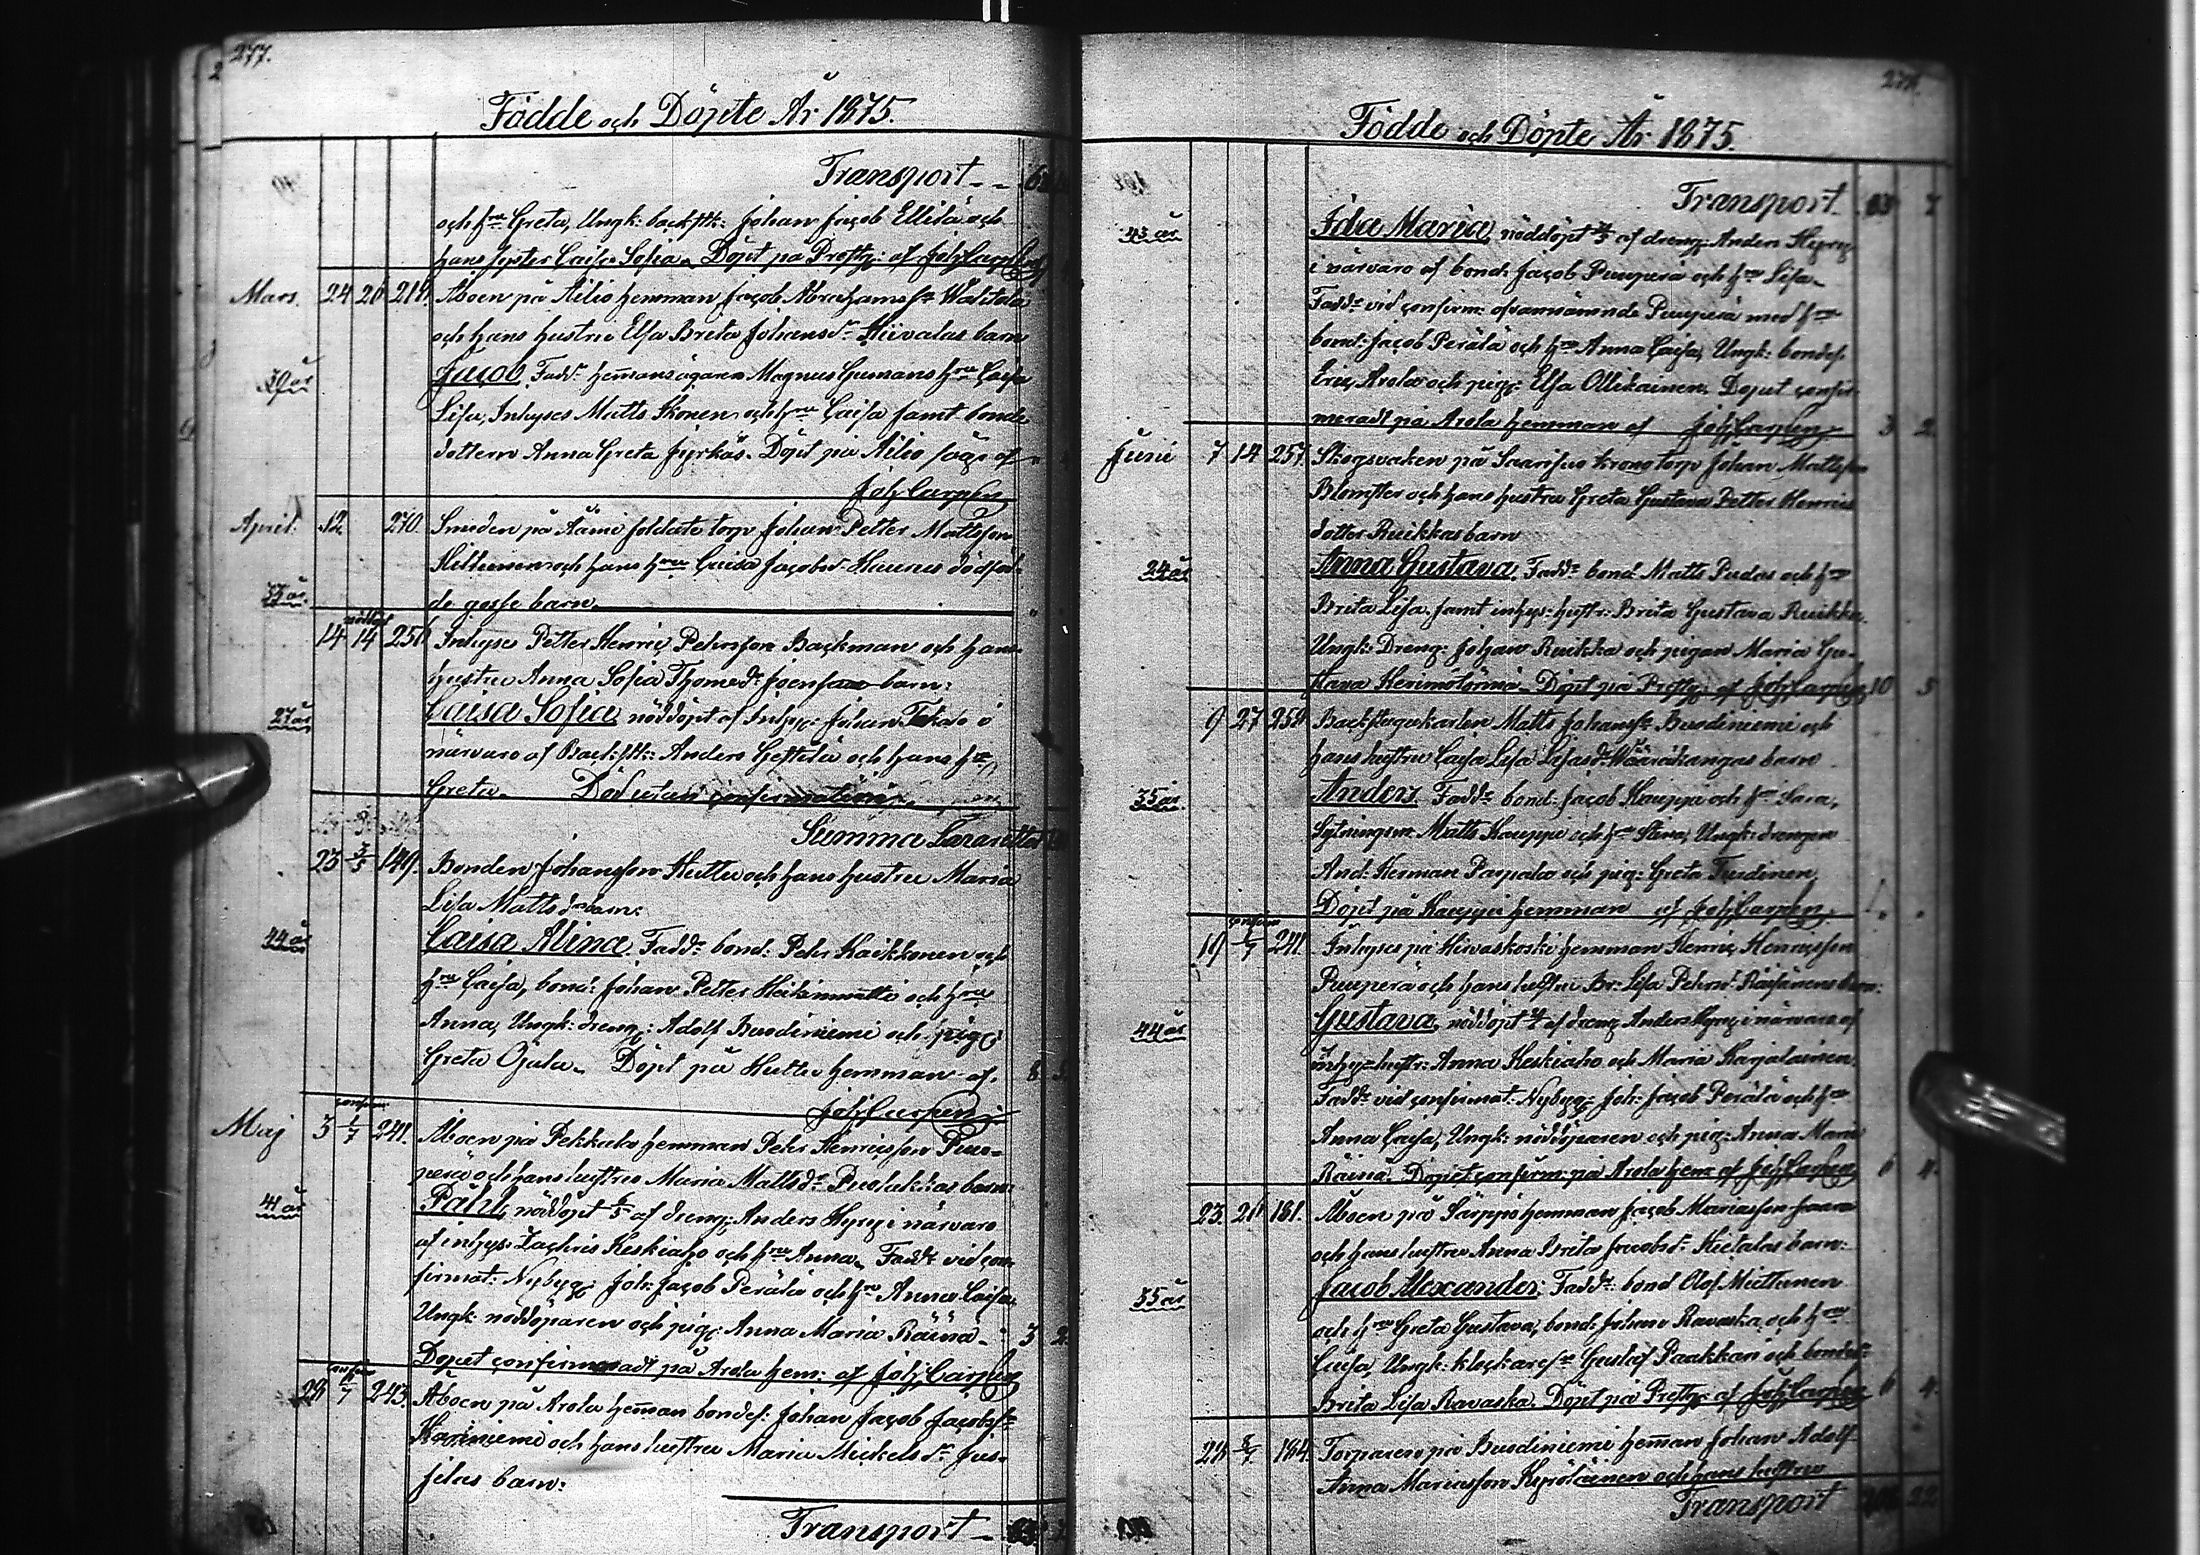 277.
Födde och Döpte År 1875.
Transport
och hru Greta, Ungk: backstk: Johan Jacob Ellilä och
hans syster Caisa Sofia. Döpt på Prestg: af Joh Carpen
Mars. 24 20 218. Åboen på Ailio hemman Jacob Abrahamss
och hans hustru Elsa Breta Johansdr Hiivalas barn
Jacob, Faddr hem̄ansägaren Magnus Gumans hru Caisa
Lisa, Inhyses Matts Ikonen och hru Caisa samt bonde
dottern Anna Greta Jyrkäs. Döpt på Ailio såg af
Joh Carpen
April. 12 270. Smeden på soldate torp Johan Petter Mattsson
Hiltunen och hans hru Caisa Jacobsd dödföd-
33 år
de gosse barn
14 14 256 Inhyse Petter Henric Pehrsson Backman och hans
hustru Anna Sofia Thomedr barn:
27 år
Caisa Sofia nöddöpt af Inhys: Johan i
närvaro af Back:stk: Anders och hans hru
Greta. Död utan confirmation
Summa
23 3/5 149. Bonden Johansson Huttu och hans hustru Maria
Lisa Mattsdr barn:
44 år
Caisa Alina. Faddr bond: Pehr Kaikkonen och
hru Caisa, bond: Johan Petter Heikinmatti och hru
Anna, Ungk: dreng: Adolf Busdiniemi och pig:
Greta Ojala. Döpt på Huttu hemman af.
Joh Carpen
Maj 3 1/7 241. Åboen på Pekkala hemman Pehr Henricsson Puu-
perä och hans hustru Maria Mattsdr Puolakkas barn:
41 år
Påhl, nöddöpt af dreng: Anders Kyrö i närvaro
af inhys: Zachris Keskiaho och hru Anna. Faddr vid con-
firmat: Nybyg: Joh: Jacob Perälä och hru Anna Caisa,
Ungk: nöddöparen och pig: Anna Maria Räinä. 3 2
Döpet confirmeradt på Arola hem: af Joh Carpen
28 1/7 243. Åboen på Arola hem̄an bondes: Johan Jacob Jacobss
Kariniemi och hans hustru Maria Mickelsdr Jus-
silas barn:
Transport
Födde och Döpte År 1875.
Transport. 7
43 år
Ida Maria, nöddöpt af dreng Anders
i närvaro af bond: Jacob Puuperä och hru Lisa.
Faddr vid confirm: ofvannämnde Puuperä med hru
bond: Jacob Perälä och hru Anna Caisa, Ungk: bondes:
Eric Arola och pig: Elsa Ollikainen. Döpet confir-
meradt på Arola hemman af Joh Carpen 3 2.
Juni 7 14 257. på Saarisuo krono torp Johan Mattsson
Blomster och hans hustru Greta Gustava Petter Henrics
dotter Ruikkas barn
24 år
Anna Gustava. Faddr bond: Matts Pudas och hru
Brita Lisa, samt inhys: hustr: Brita Gustava Ruikka,
Ungk: Dreng: Johan Ruikka och pigan Maria Gu-
stava Herimotörmä. Döpt på Prestg: af Joh Carpen 10 5
9 27 259 Backstugukarlen Matts Johanss Busdiniemi och
hans hustru Caisa Lisa Lisasdr barn
35 år
Anders. Faddr bond: Jacob Kauppi och hru Sara,
Sytningsm: Matts Kauppi och hru Stina, Ungk: drengen
And: Herman och pig: Greta
Döpt på Kauppi hemman af Joh Carpen.
19 1/7 241. Inhyses på Hiivaskoski hemman Henric Henricsson
Puuperä och hans hustru Br: Lisa Pehrsd: Räisänens barn:
44 år
Gustava, nöddöpt af dreng Anders i närvaro af
inhys: hustr: Anna Keskiaho och Maria Karjalainen.
Faddr vid confirmat: Nybyg: Joh: Jacob Perälä och hru
Anna Caisa, Ungk: nöddöparen och pig: Anna Maria
Räinä. Döpet confirm: på Arola hem: af Joh Carpen 6 4.
23. 181. Åboen på Särppi hemman Jacob Mariasson
och hans hustru Anna Brita Jacobsd: Hietalas barn:
35 år
Jacob Alexander. Faddr bond Olof Miettunen
och hru Greta Gustava, bond: Johan Ravaska och hru
Caisa, Ungk: klockares: Gustaf Paakkari och
Brita Lisa Ravaska. Döpt på Prestg: af Joh Carpen 6 4.
28 184 Torparen på Busdiniemi hem̄an Johan Adolf
Anna Mariasson Kyröläinen och hans hustru
Transport 22